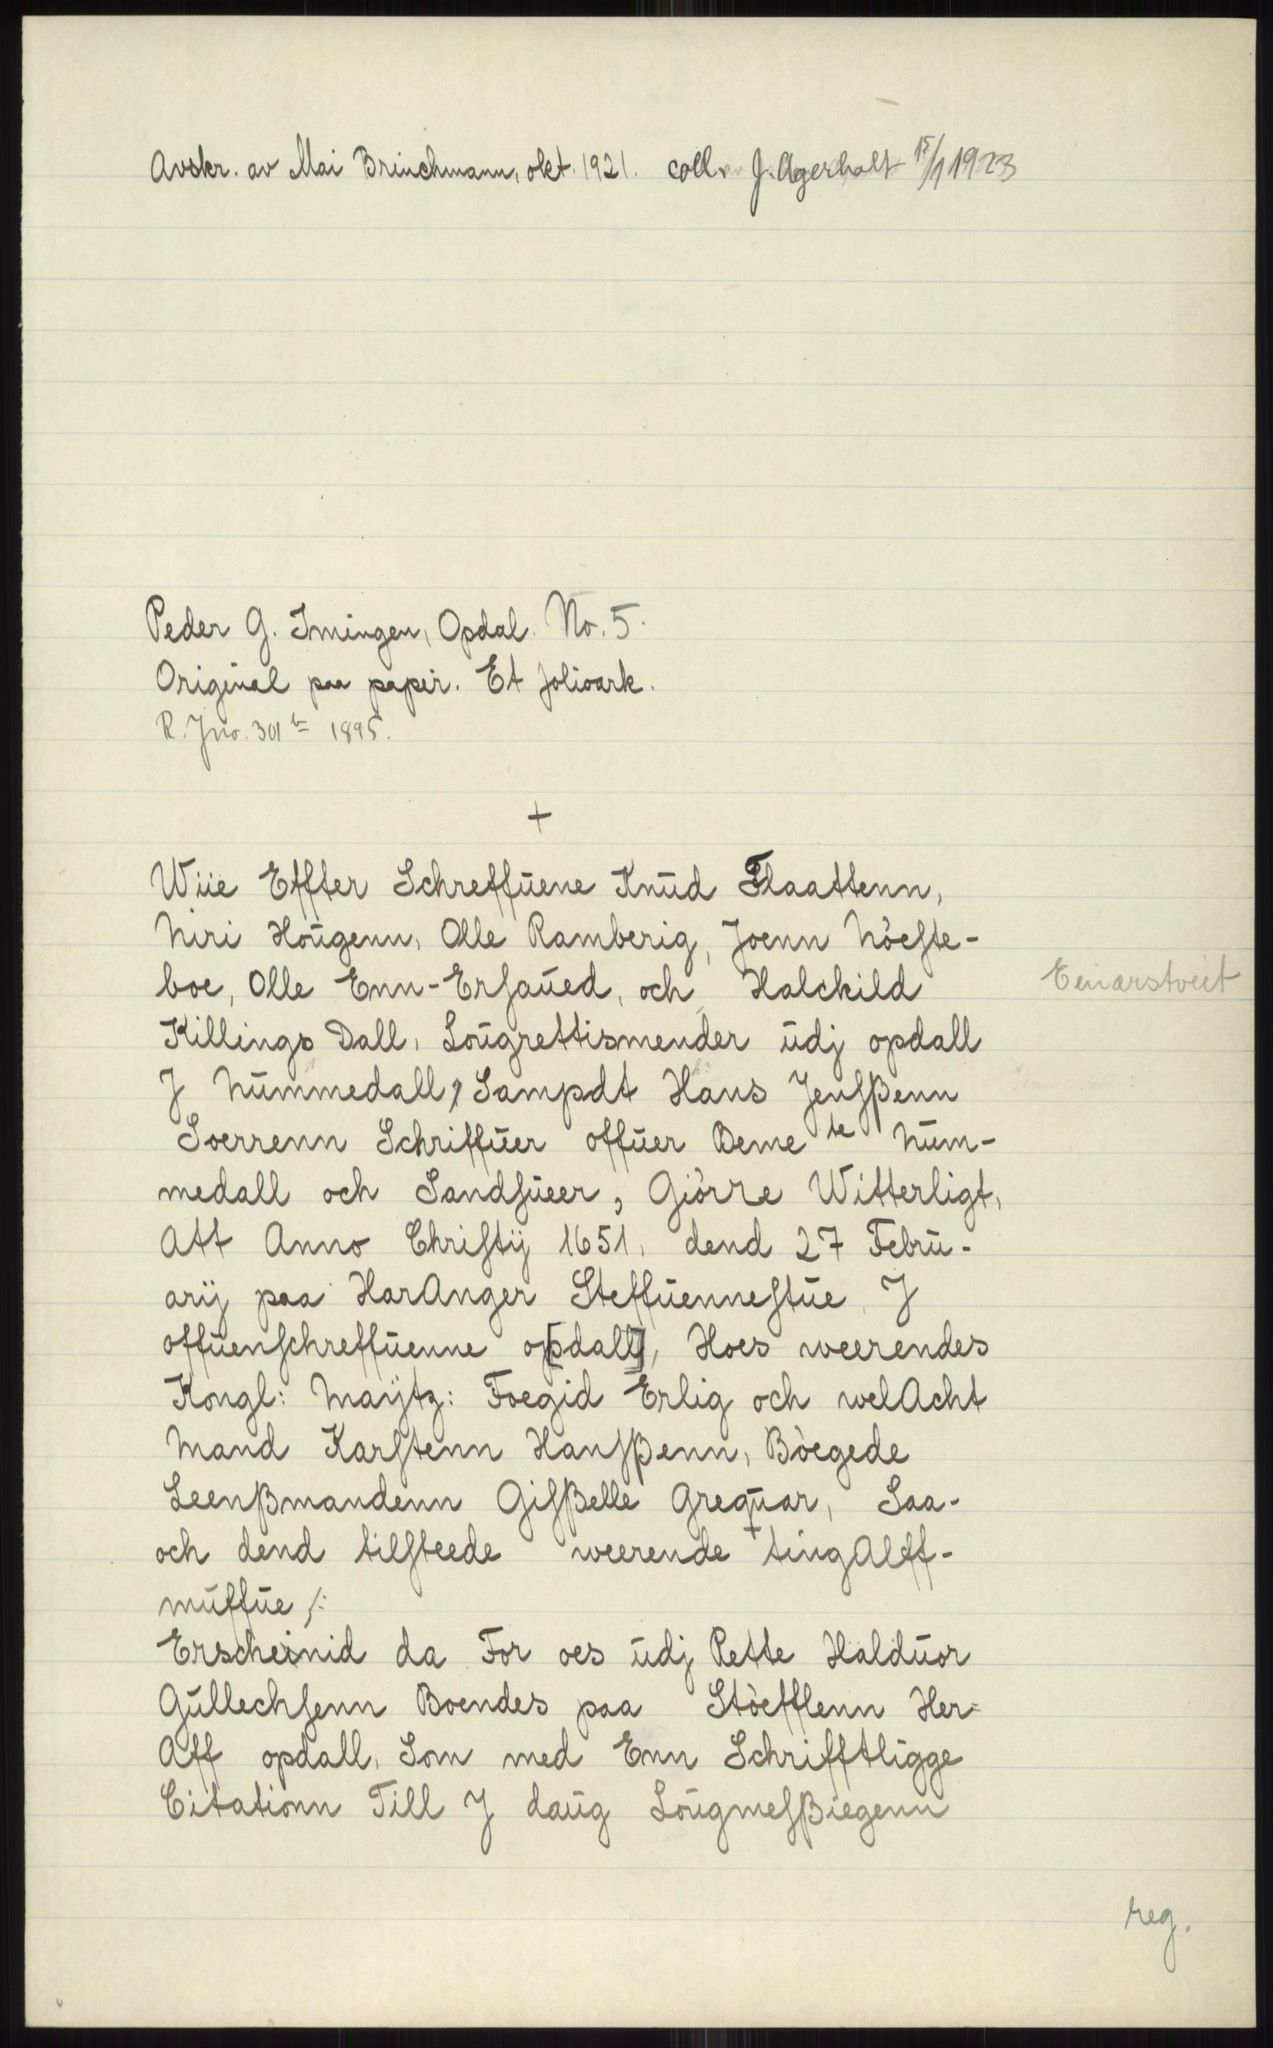 Avskr. av Mai Brinchmann, okt. 1921. coll. J. Agerholt 15/1 1923
Peder G. Imingen, Opdal. No. 5.
Original paa papir. Et folioark.
R. Jno. 301 1895.
+
Wiie Effter Schreffūene Knūd Flaattenn,
Niri Hoūgenn, Olle Ramberig, Joenn Nòeſte-
boe, Olle Enn-Erſaūed, och Halchild
Einarstveit
Killings Dall, Loūgrettismender ūdj opdall
J Nūmmedall, Sampdt Hans Jenſßenn
Soerrenn Schriffūer offūer Beme te Nūm-
medall och Sandſūeer, Giòrre Witterligt,
Att Anno Chriſtÿ 1651, dend 27 Febrū-
arÿ paa HarAnger Steffūenneſtūe J
offūenſchreffūenne o[pdall], Hoes weerendes
Kongl: Maÿtz: Foegid Erlig och welAcht
Mand Karſtenn Hanſßenn, Bòegede
Leenßmandenn Giſßelle Greqūar, Saa-
och dend tilſteede weerende tingAlff-
mūffūe /:
Erscheinid da For oes ūdj Rette Haldūor
Gūllechſenn Boendes paa Stòefflenn Her
Aff opdall, Som med Enn Schrifftligge
Citationn Till J daūg Loūgmeſßiegenn
reg.